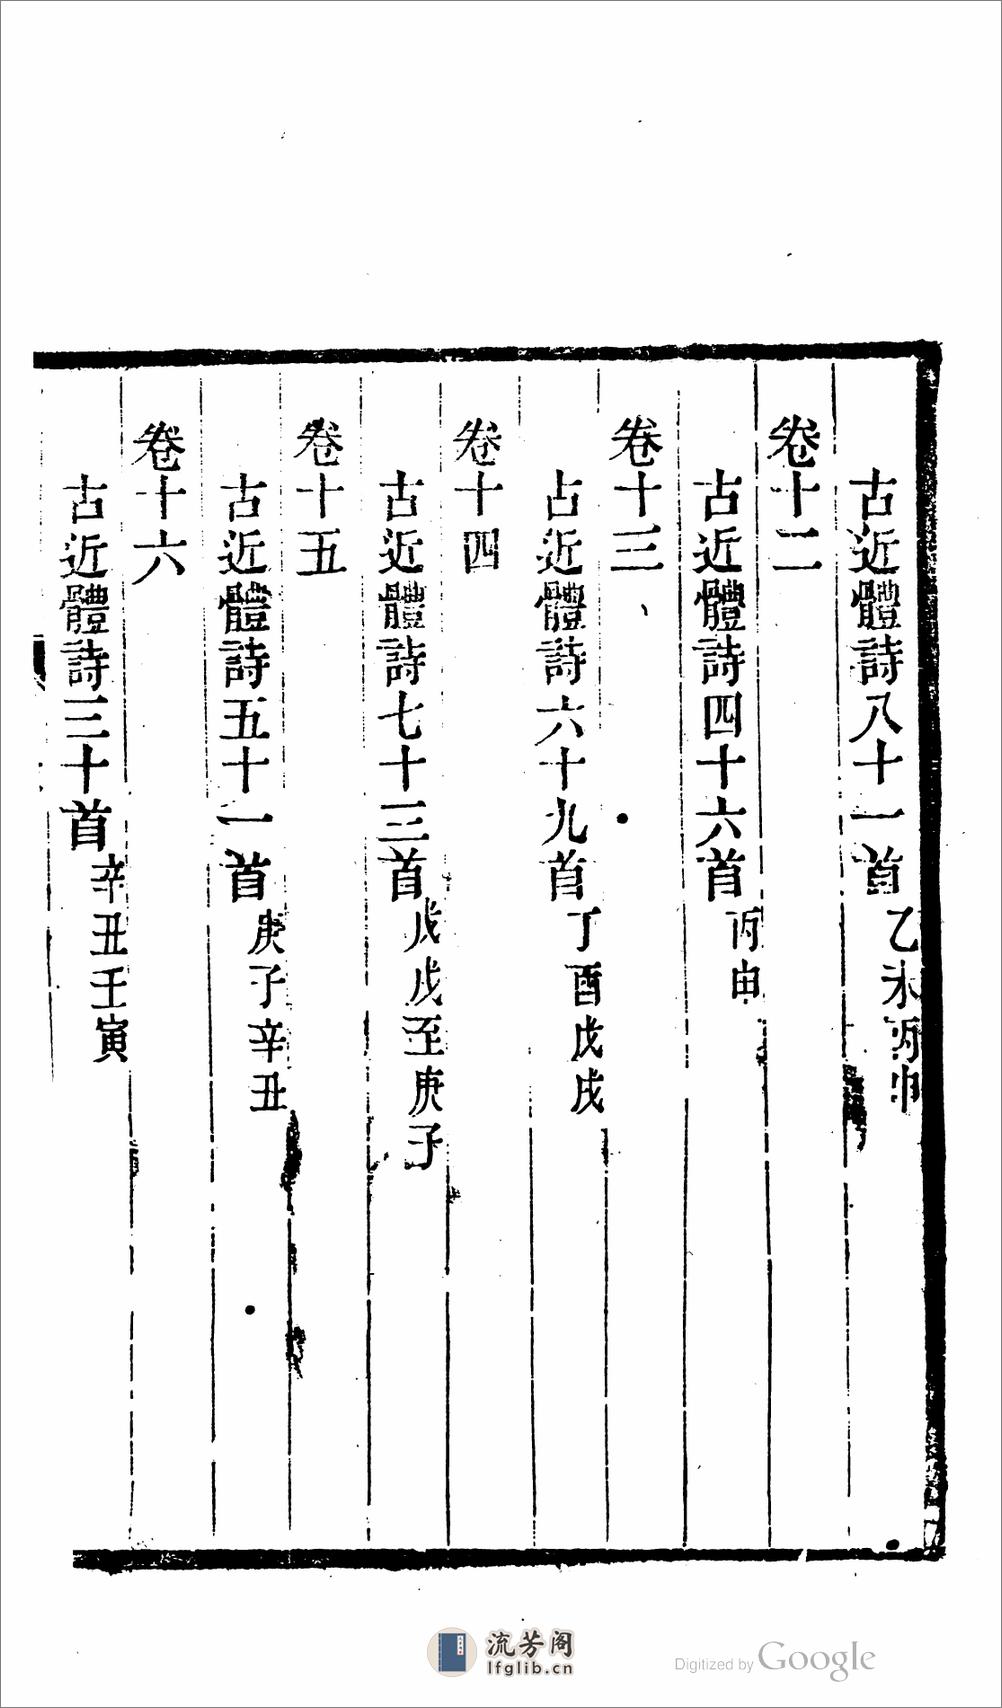 古近體詩八十一首乙未丙申
卷十二
古近體詩四十六首丙申
卷十三
古近體詩六十九首丁酉戊戌
卷十四
古近體詩七十三首戊戌至庚子
卷十五
古近體詩五十一首庚子辛丑
卷十六
古近體詩三十首辛丑壬寅
流芳阁
lfglib.cn
Digitized by Google